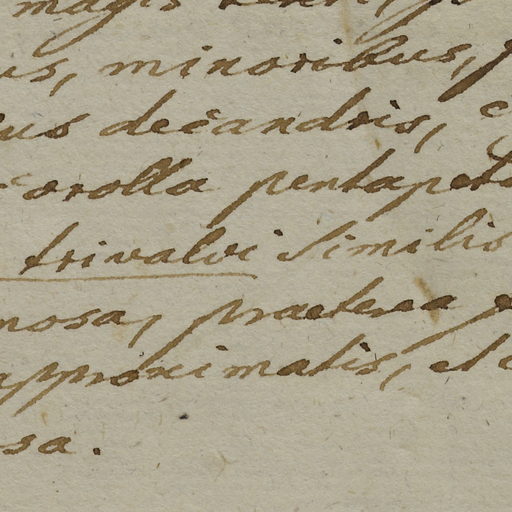 magis
us, minoribus,
us decandris,
corolla pentapet
trivalvi similis
mosa, praeterea
approximatis, et
sa.